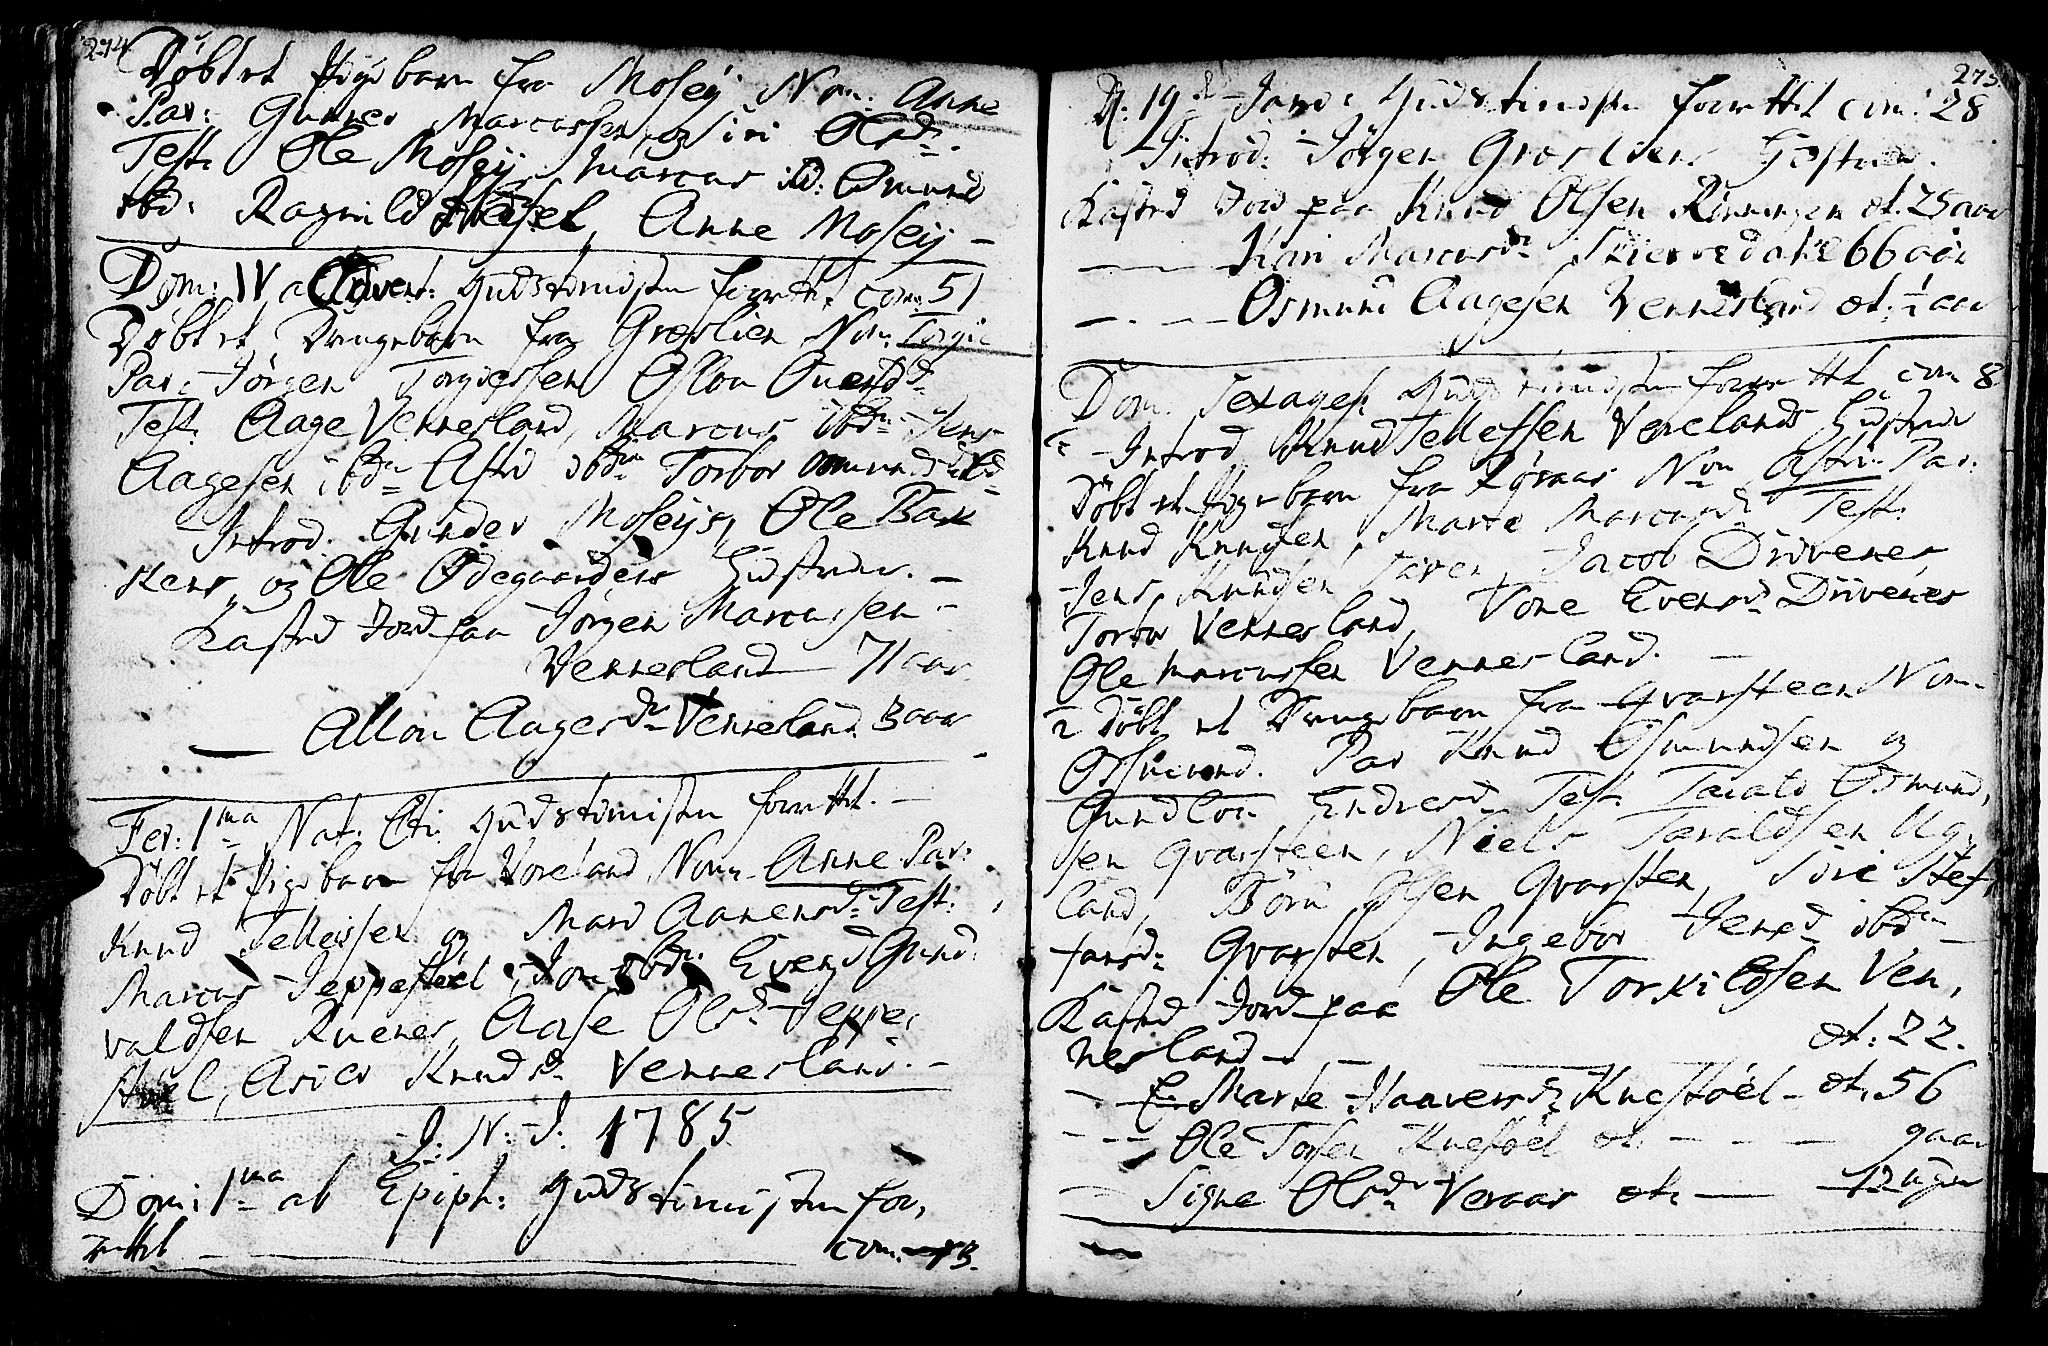 274.
Døbt et Pige barn fra Moseij Nom: Anne
Par: Gunder Marcussen og Siri Olsd.
Test: Ole Moseij, Marcus ibd: Osmund
ibd: Ragnild, Anne Moseij –
Dom: IV Advent: Gudstienisten forrettet com: 51
Døbt et Drengebarn fra Græslien Nom: Torgie
Par: Jørgen Torgiessen Aslou Ouensd.
Test: Aage Vennesland, Marcus ibdm Jens
Aagesen ibdm Astri ibdm Torbor Omundsd ibd
Introd. Gunder Moseijs, Ole Bak
kens, og Ole Ødegaardens Hustruer. –
Kasted Jord paa Jørgen Marcussen –
Vennesland 71 aar
— Allou Aagesdr Vennesland 3 aar
Fer: 1ma Nat: Chri: Gudstienisten forrettet. –
Døbt et Pige barn fra Voreland Nom Anne Par:
Knud Tellessen og Mari Aanensd. Test:
Marcus Jeppestøel, Jon ibdm Evend Gund:
valdsen Ruenes, Aase Olsd Jeppe,
støel, Asier Knudsd Vennesland. –
J: N: J: 1785
Dom: 1ma ab Epiph: Gudstienisten for,
rettet — com: 13.
275.
D: 19de Janv: Gudstienisten forrettet com: 28
Introd: Jørgen Græsliens Hustrue.
Kasted Jord paa Knud Olsen Rønningen æt. 25 aar
— Kari Marcusdr Skierredahl 66 aar
— Osmund Aagesen Vennesland æt: ½ aar
Dom. Sexages: Gudstienisten forrettet com 8
Introd Knud Tellessen Vorelands Hustrue
Døbt et Pige barn fra Røraas Nom Astri Par:
Knud Knudsen, Marte Marcusd Test:
Jens Knudsen, Jacob Drivenes,
Torbor Vennesland, Tone Evensd Drivenes
Ole Marcussen Vennesland. –
2 Døbt et Drenge barn fra Qvarsteen Nom
Osmund. Par Knud Osmundsen og
Gundlou Endresd Test: Tarald Osmund,
sen Qvarsteen, Niels Taraldsen Ug,
land, Børu Olsen Qvarsten, Siri Stef,
fensd: Qvarsten, Ingebor Jensd ibdm –
Kasted Jord paa Ole Torkildsen Ven,
nesland — æt: 22.
– Marte Haaversdr Knestøel – æt. 56
– – – Ole Torsen Knestøel æt. – – – 9 aar
– Signe Olsdr Veraas æt. — 12 uger